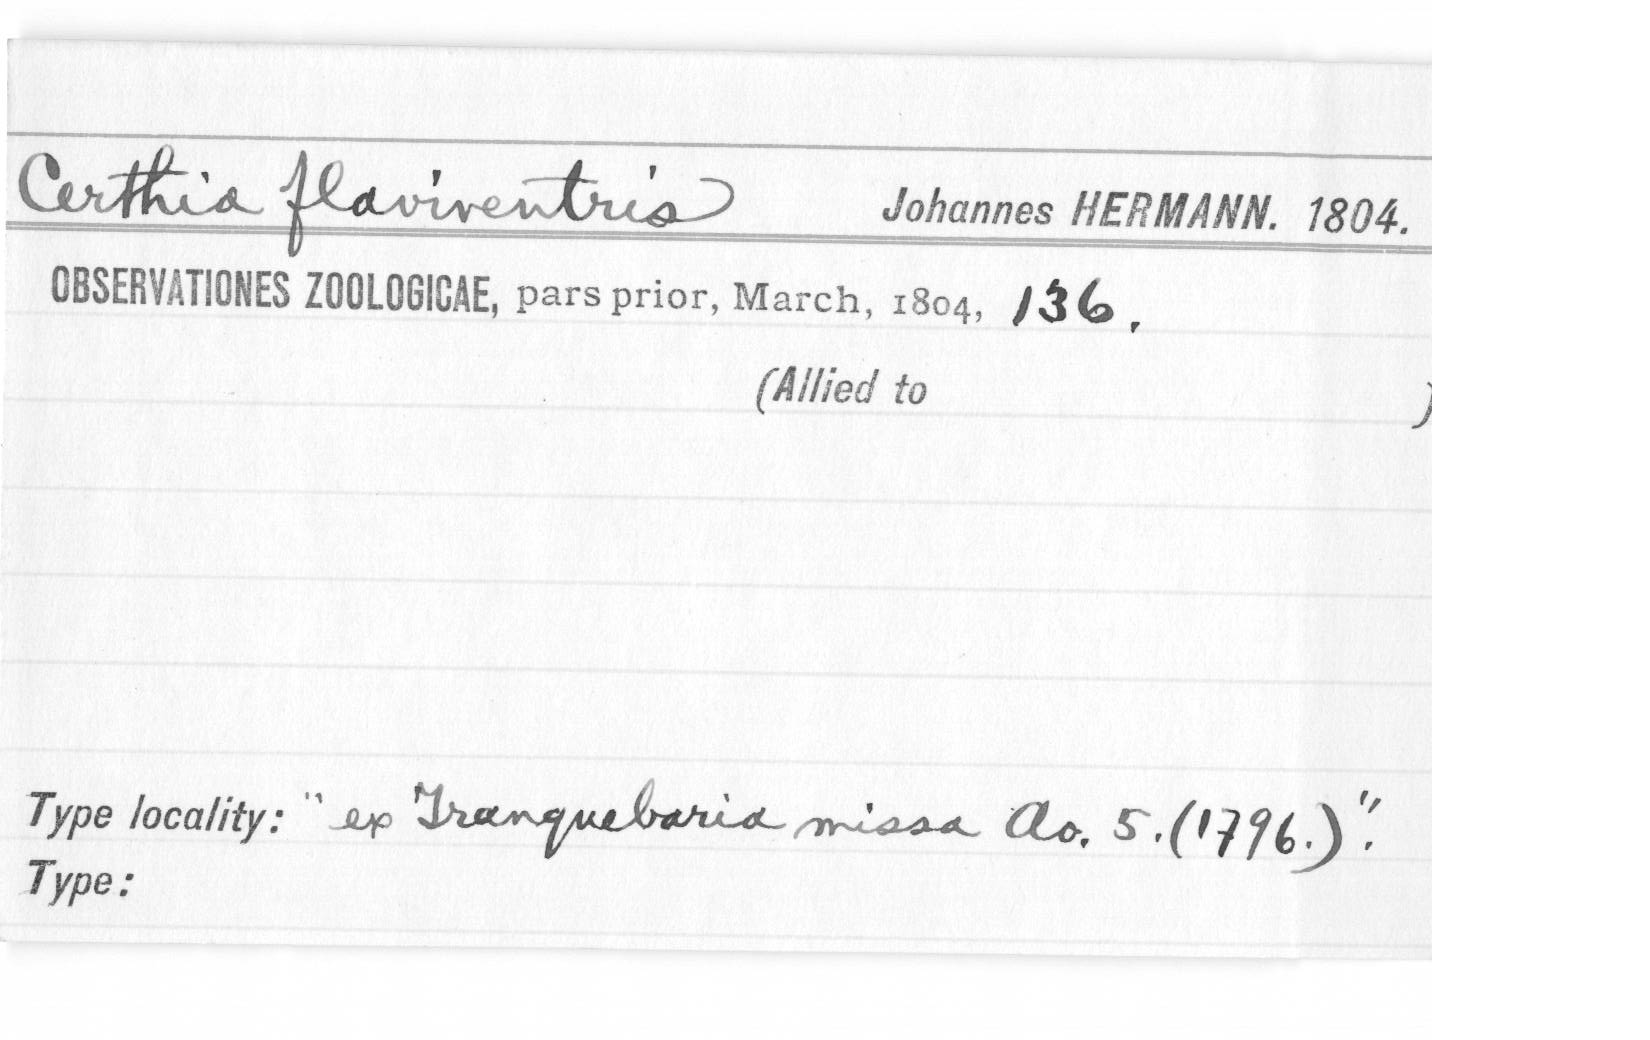 Certhia flaviventris Johannes HERMANN. 1804.
OBSERVATIONES ZOOLOGICAE, pars prior, March, 1804, 136.
(Allied to )
Type locality: "ex Tranquebaria missa Ao. 5. (1796.)".
Type: